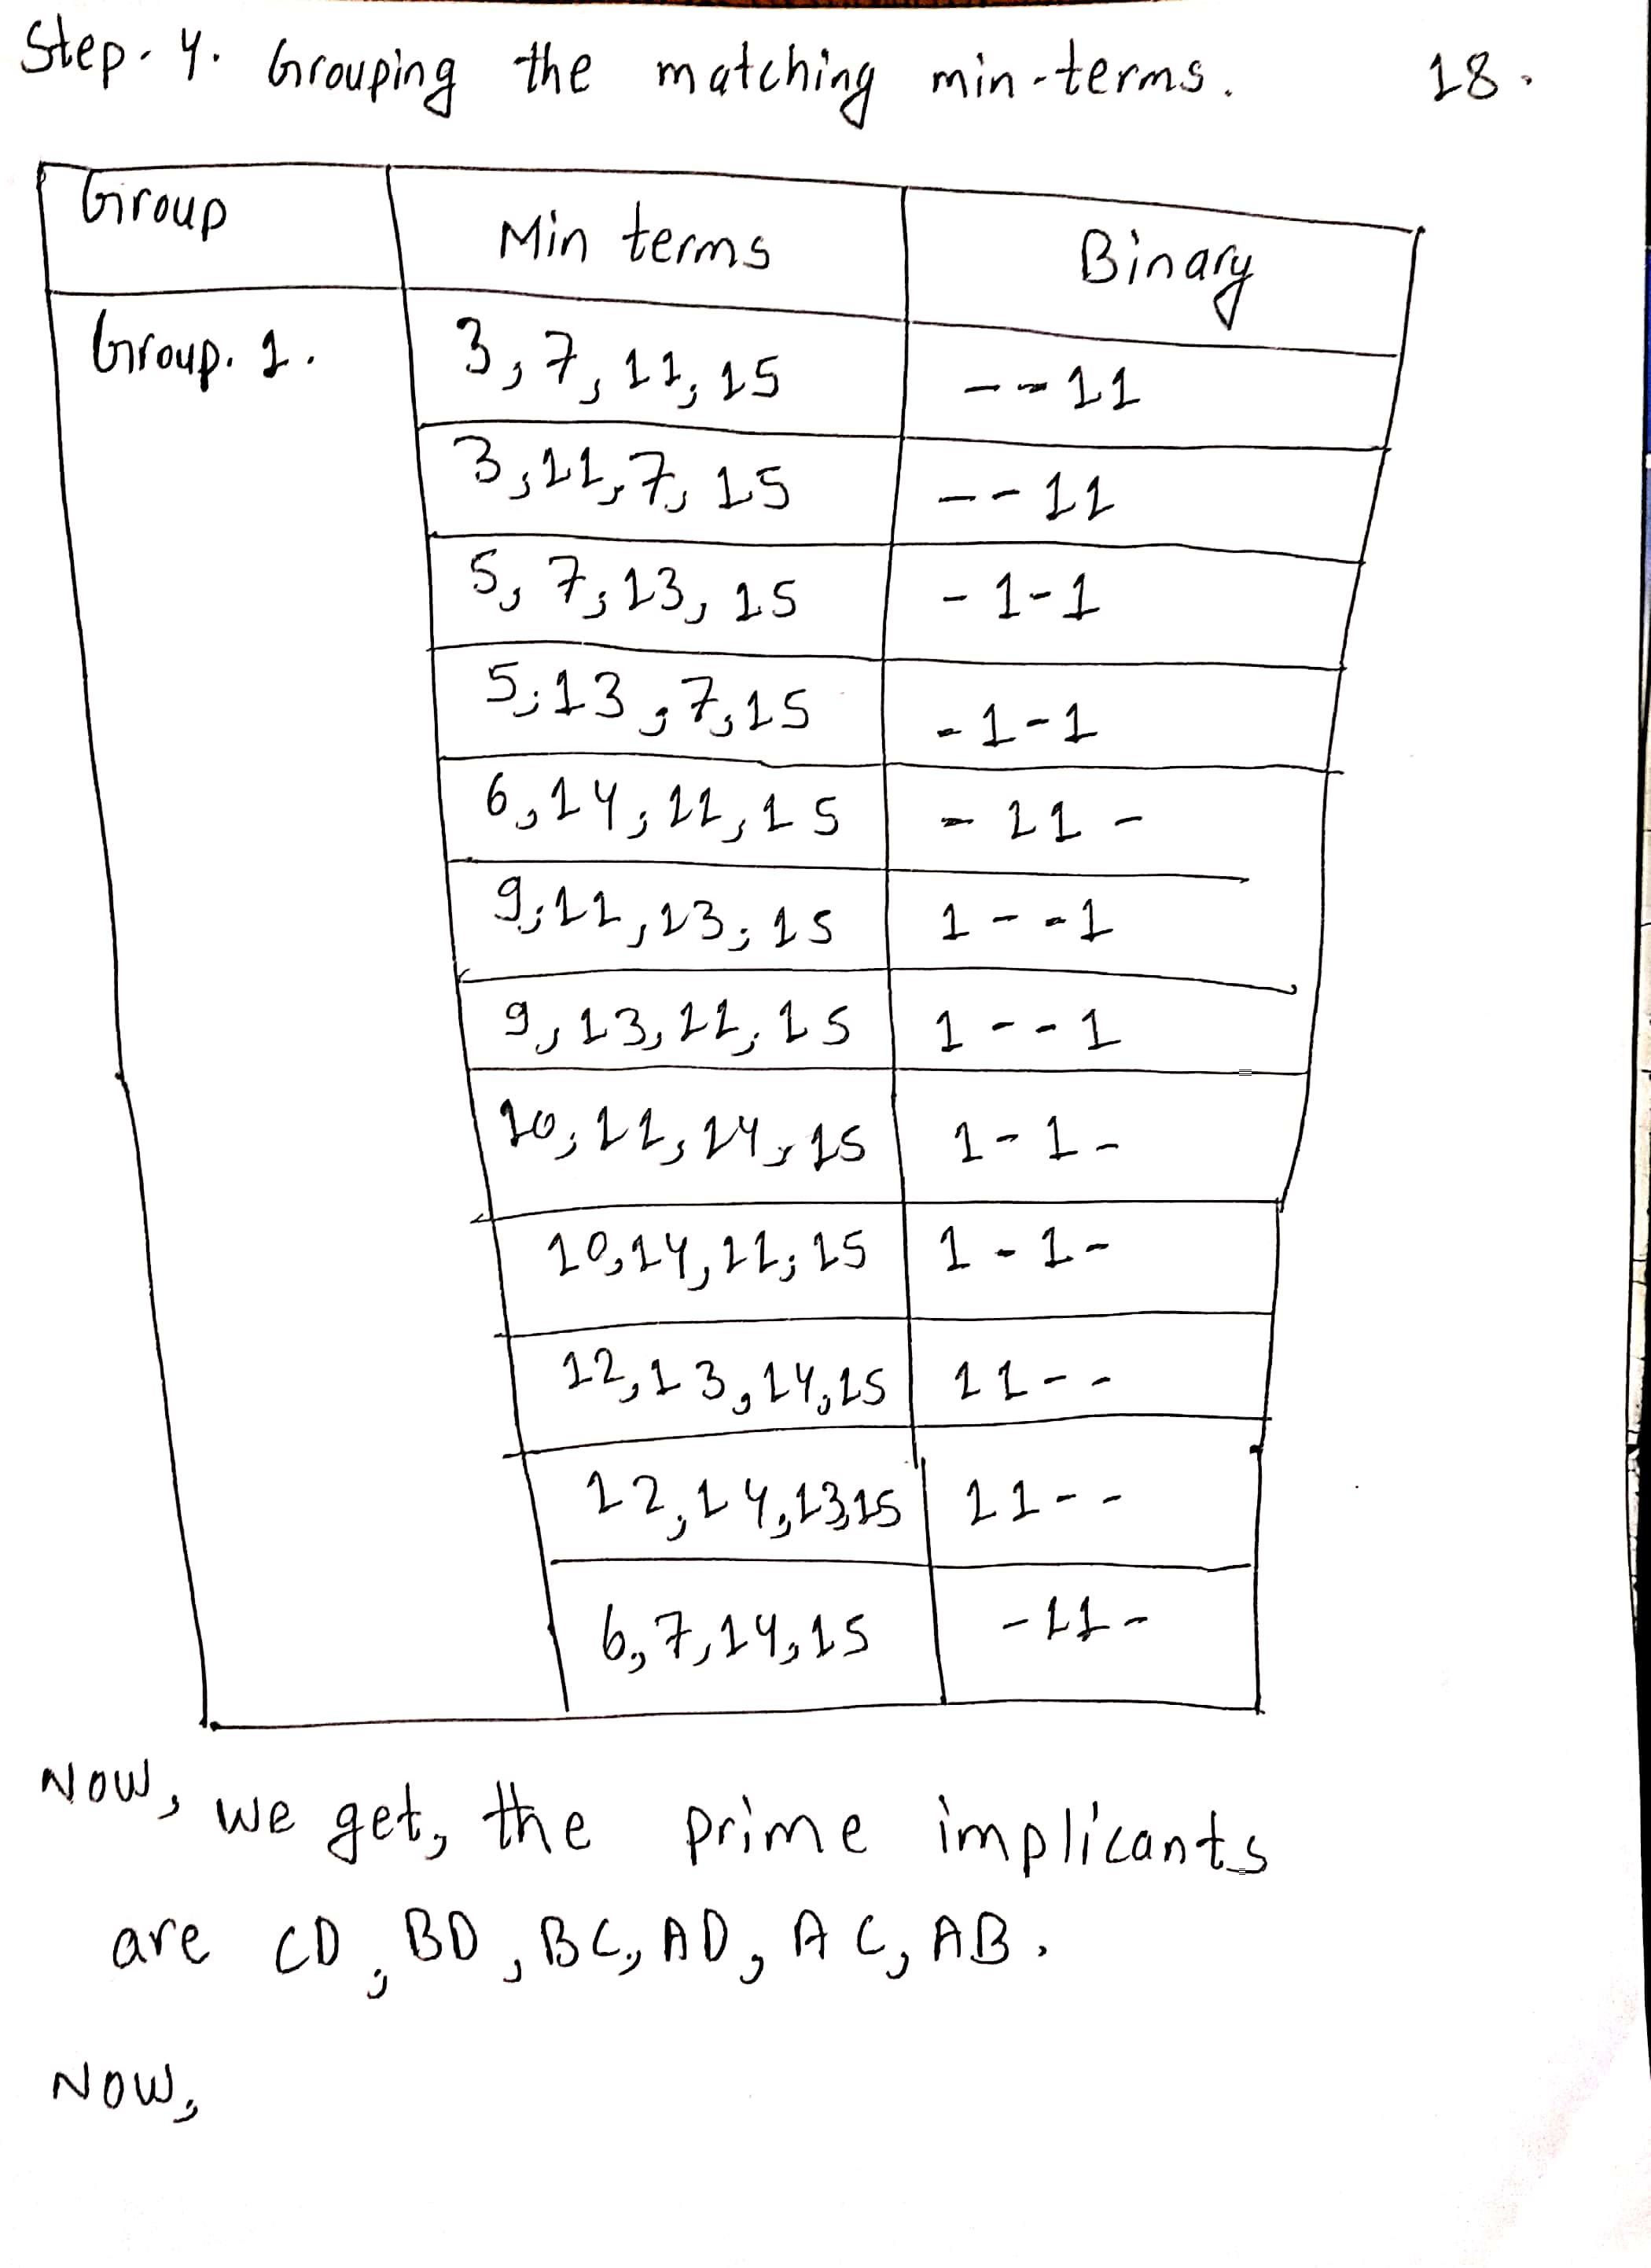 Step-4. Grouping the matching min-terms. 18.
Group Min terms Binary
Group. 1. 3, 7, 11, 15 --11
3, 11, 7, 15 --11
5, 7, 13, 15 -1-1
5, 13, 7, 15 -1-1
6, 14, 11, 15 -11-
9, 11, 13, 15 1--1
9, 13, 11, 15 1--1
10, 11, 14, 15 1-1-
10, 14, 11, 15 1-1-
12, 13, 14, 15 11--
12, 14, 13, 15 11--
6, 7, 14, 15 -11-
Now, we get, the prime implicants
are CD, BD, BC, AD, AC, AB.
Now,